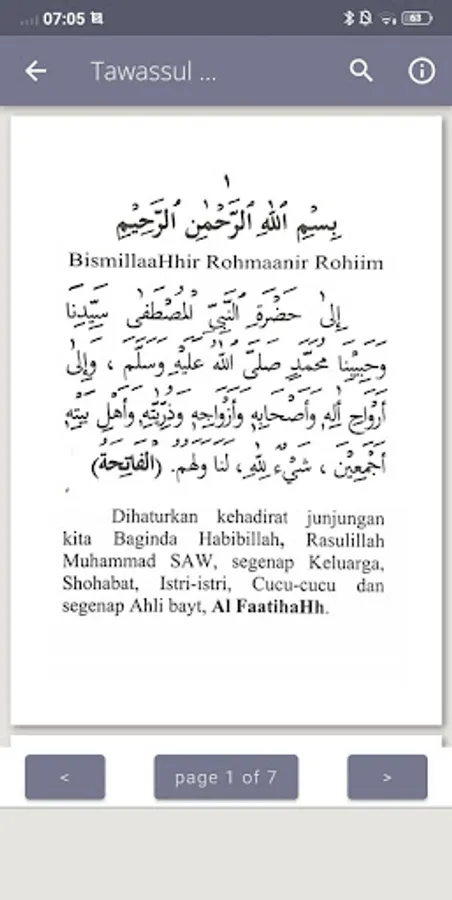 07:05
63
Tawassul ...
١
بِسْمِ ٱللّٰهِ ٱلرَّحْمٰنِ ٱلرَّحِيْمِ
BismillaaHhir Rohmaanir Rohiim
إِلىٰ حَضْرَةِ النَّبِيِّ الْمُصْطَفٰى سَيِّدِنَا
وَحَبِيْبِنَا مُحَمَّدٍ صَلَّى اللّٰهُ عَلَيْهِ وَسَلَّمَ ، وَإِلىٰ
أَرْوَاحِ أٰلِهِ وَأَصْحَابِهِ وَأَزْوَاجِهِ وَذُرِّيَّتِهِ وَأَهْلِ بَيْتِهِ
أَجْمَعِيْنَ ، شَيْءٌ لِلّٰهِ، لَنَا وَلَهُمْ. (اَلْفَاتِحَةْ)
Dihaturkan kehadirat junjungan
kita Baginda Habibillah, Rasulillah
Muhammad SAW, segenap Keluarga,
Shohabat, Istri-istri, Cucu-cucu dan
segenap Ahli bayt, Al FaatihaHh.
< page 1 of 7 >